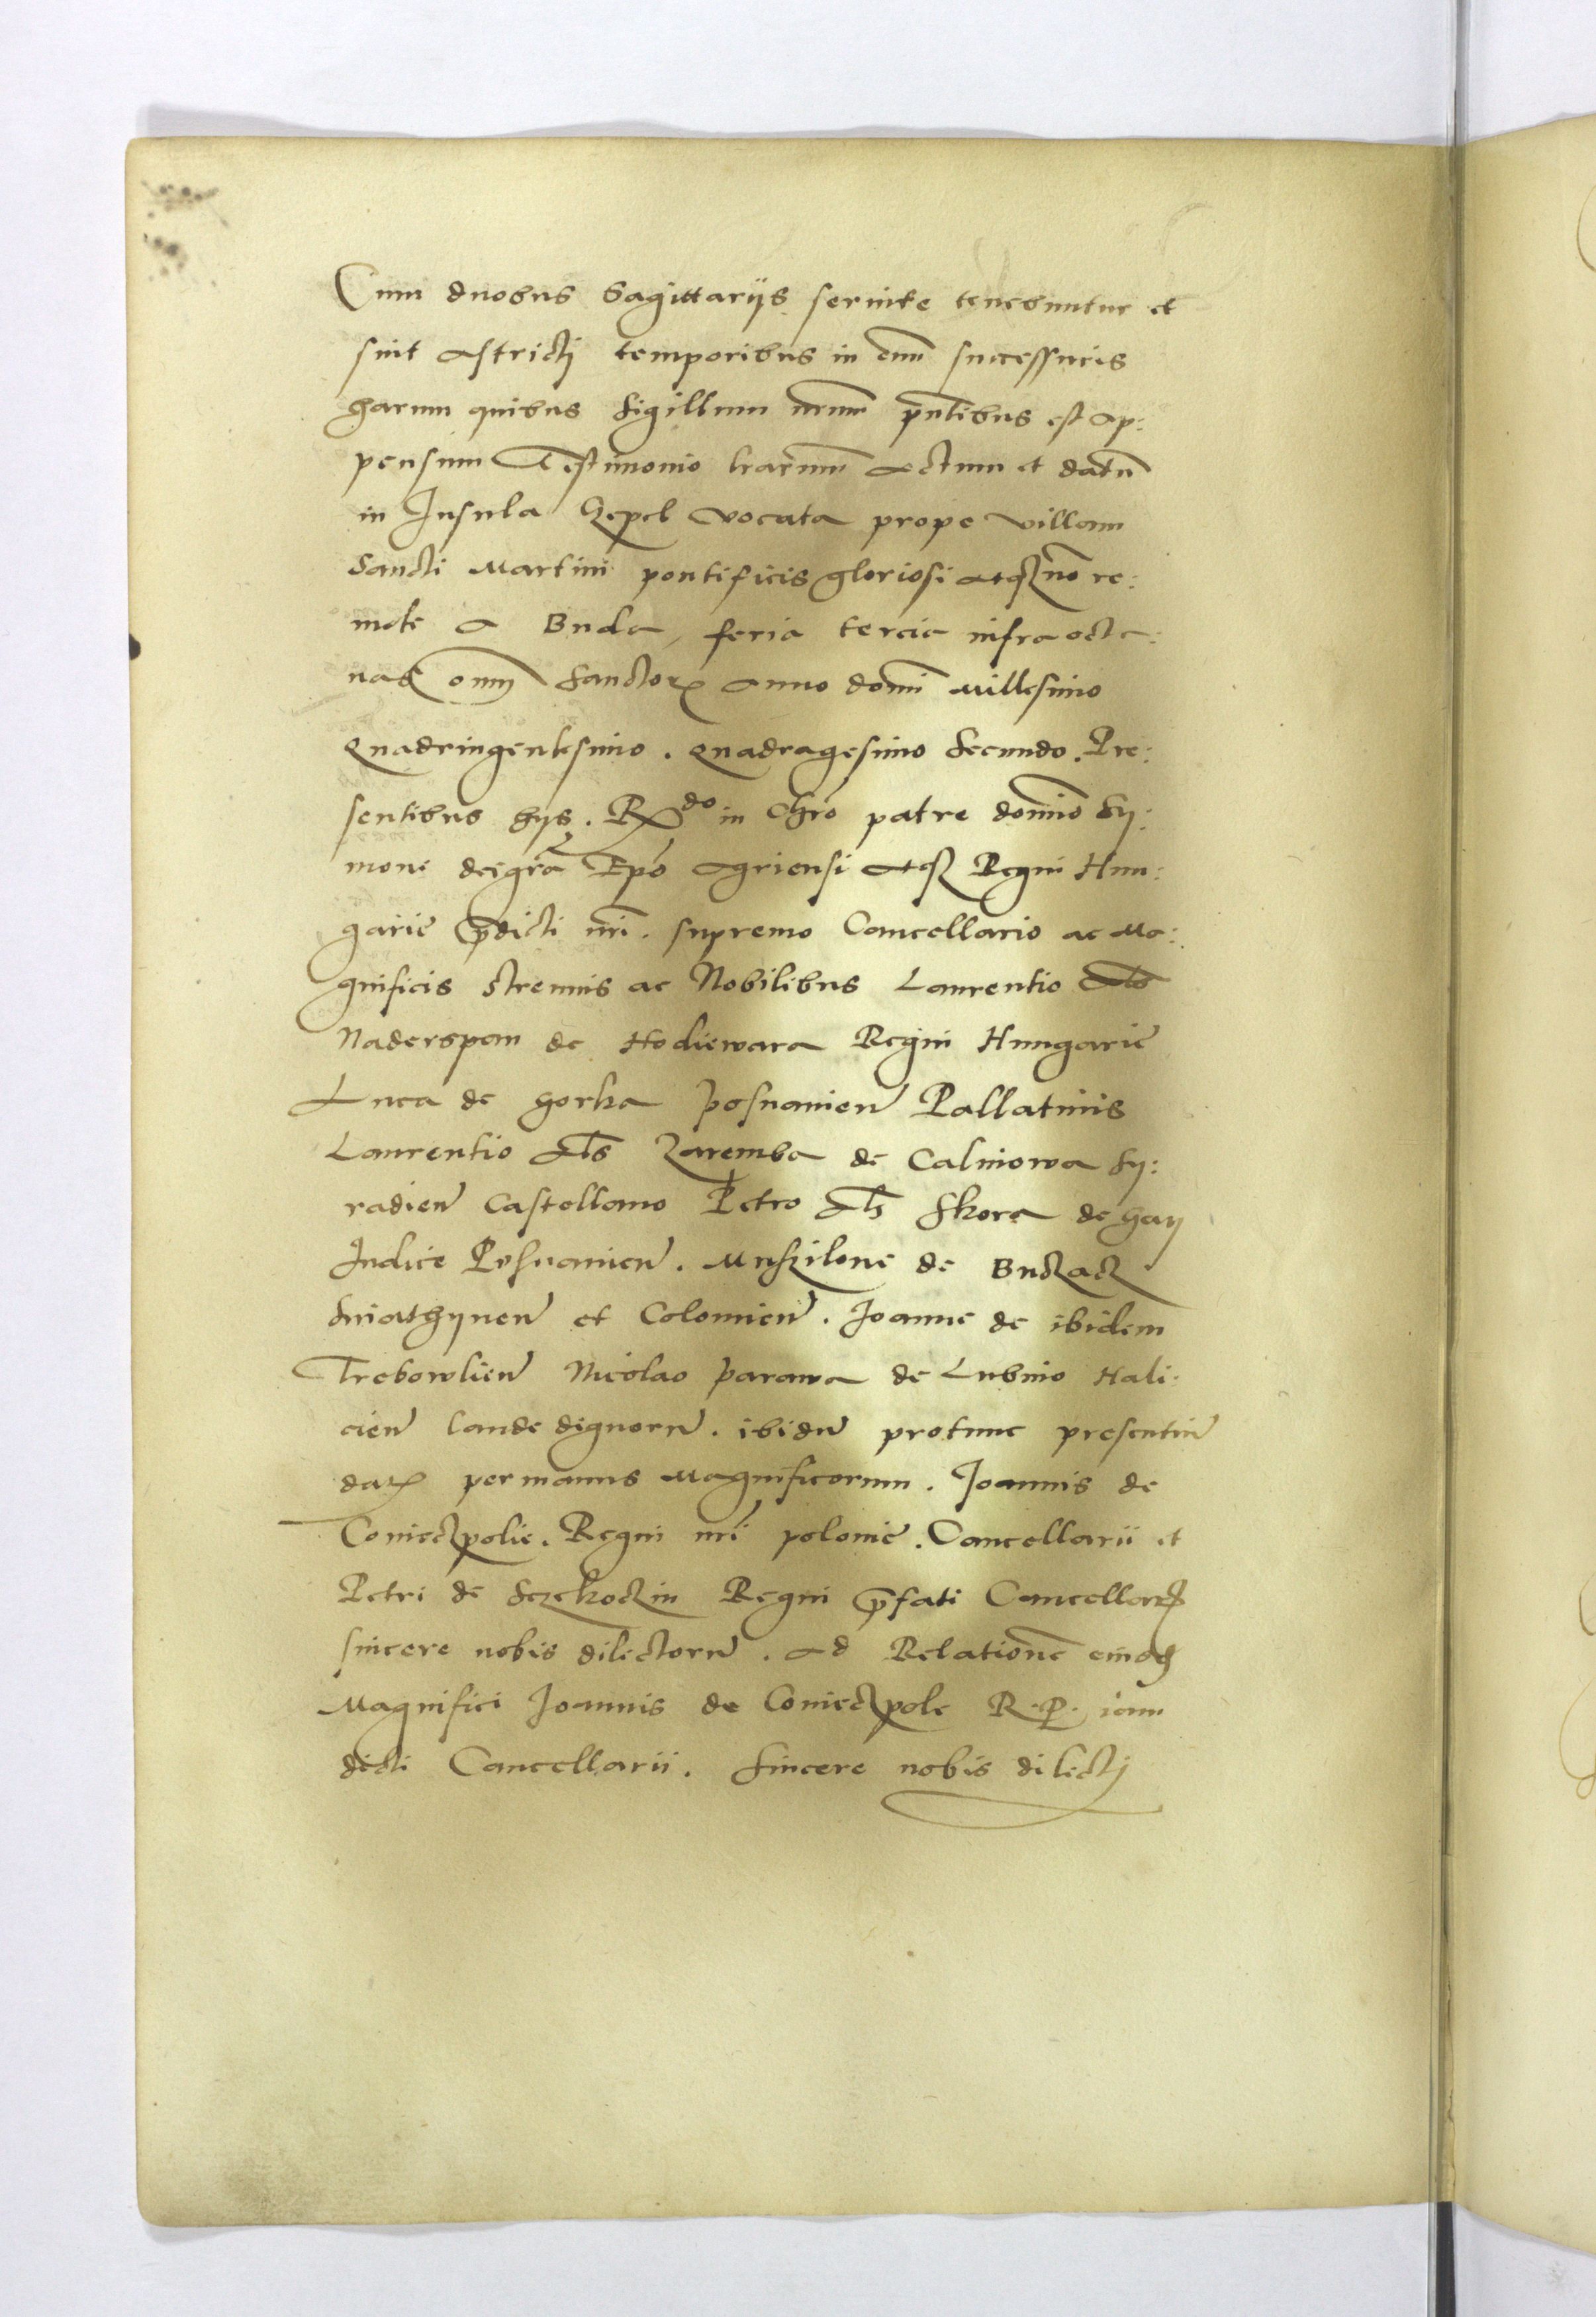 Cum duobus Sagittarijs seruire tenebuntur et
sint astricti temporibus in eum successuris
harum quibus Sigillum nrum pntibus est ap:
pensum Testimonio lrarum Actum et datu
in Insula Czepel vocata prope villam
Sancti Martini pontificis gloriosi atq no re:
mote a Buda, feria tercia infra octa:
uas omn Sanctor Anno domi Millesimo
Quadringentesimo. Quadragesimo Secundo. Pre:
sentibus hys. Rdo in Chro patre domino Sy:
mone dei gra Epo Agriensi atq Regni Hun:
garie pdicti nri. supremo Cancellario ac Ma:
gnificis Strenuis ac Nobilibus Laurentio als
Naderspan de Hodiewara Regni Hungarie
Luca de gorka posnanien Pallatinis
Laurentio als Zaremba de Calinowa Sy:
radien Castellano Petro als Skora de gay
Judice Posnanien. Muszilone de Buczacz
Sniathynen et Colomien. Joanne de ibidem
Trebowlien Nicolao parawa de Lubino Hali:
cien laude dignoru. ibidem protunc presentiu
dat per manus Magnificorum. Joannis de
Conieczpolie. Regni nri polonie. Cancellarii et
Petri de Sczekoczin Regni pfati Cancellar
sincere nobis dilectoru. Ad Relatione eiusd
Magnifici Joannis de Conieczpole R. P. iam
dicti Cancellarii. Sincere nobis dilecti